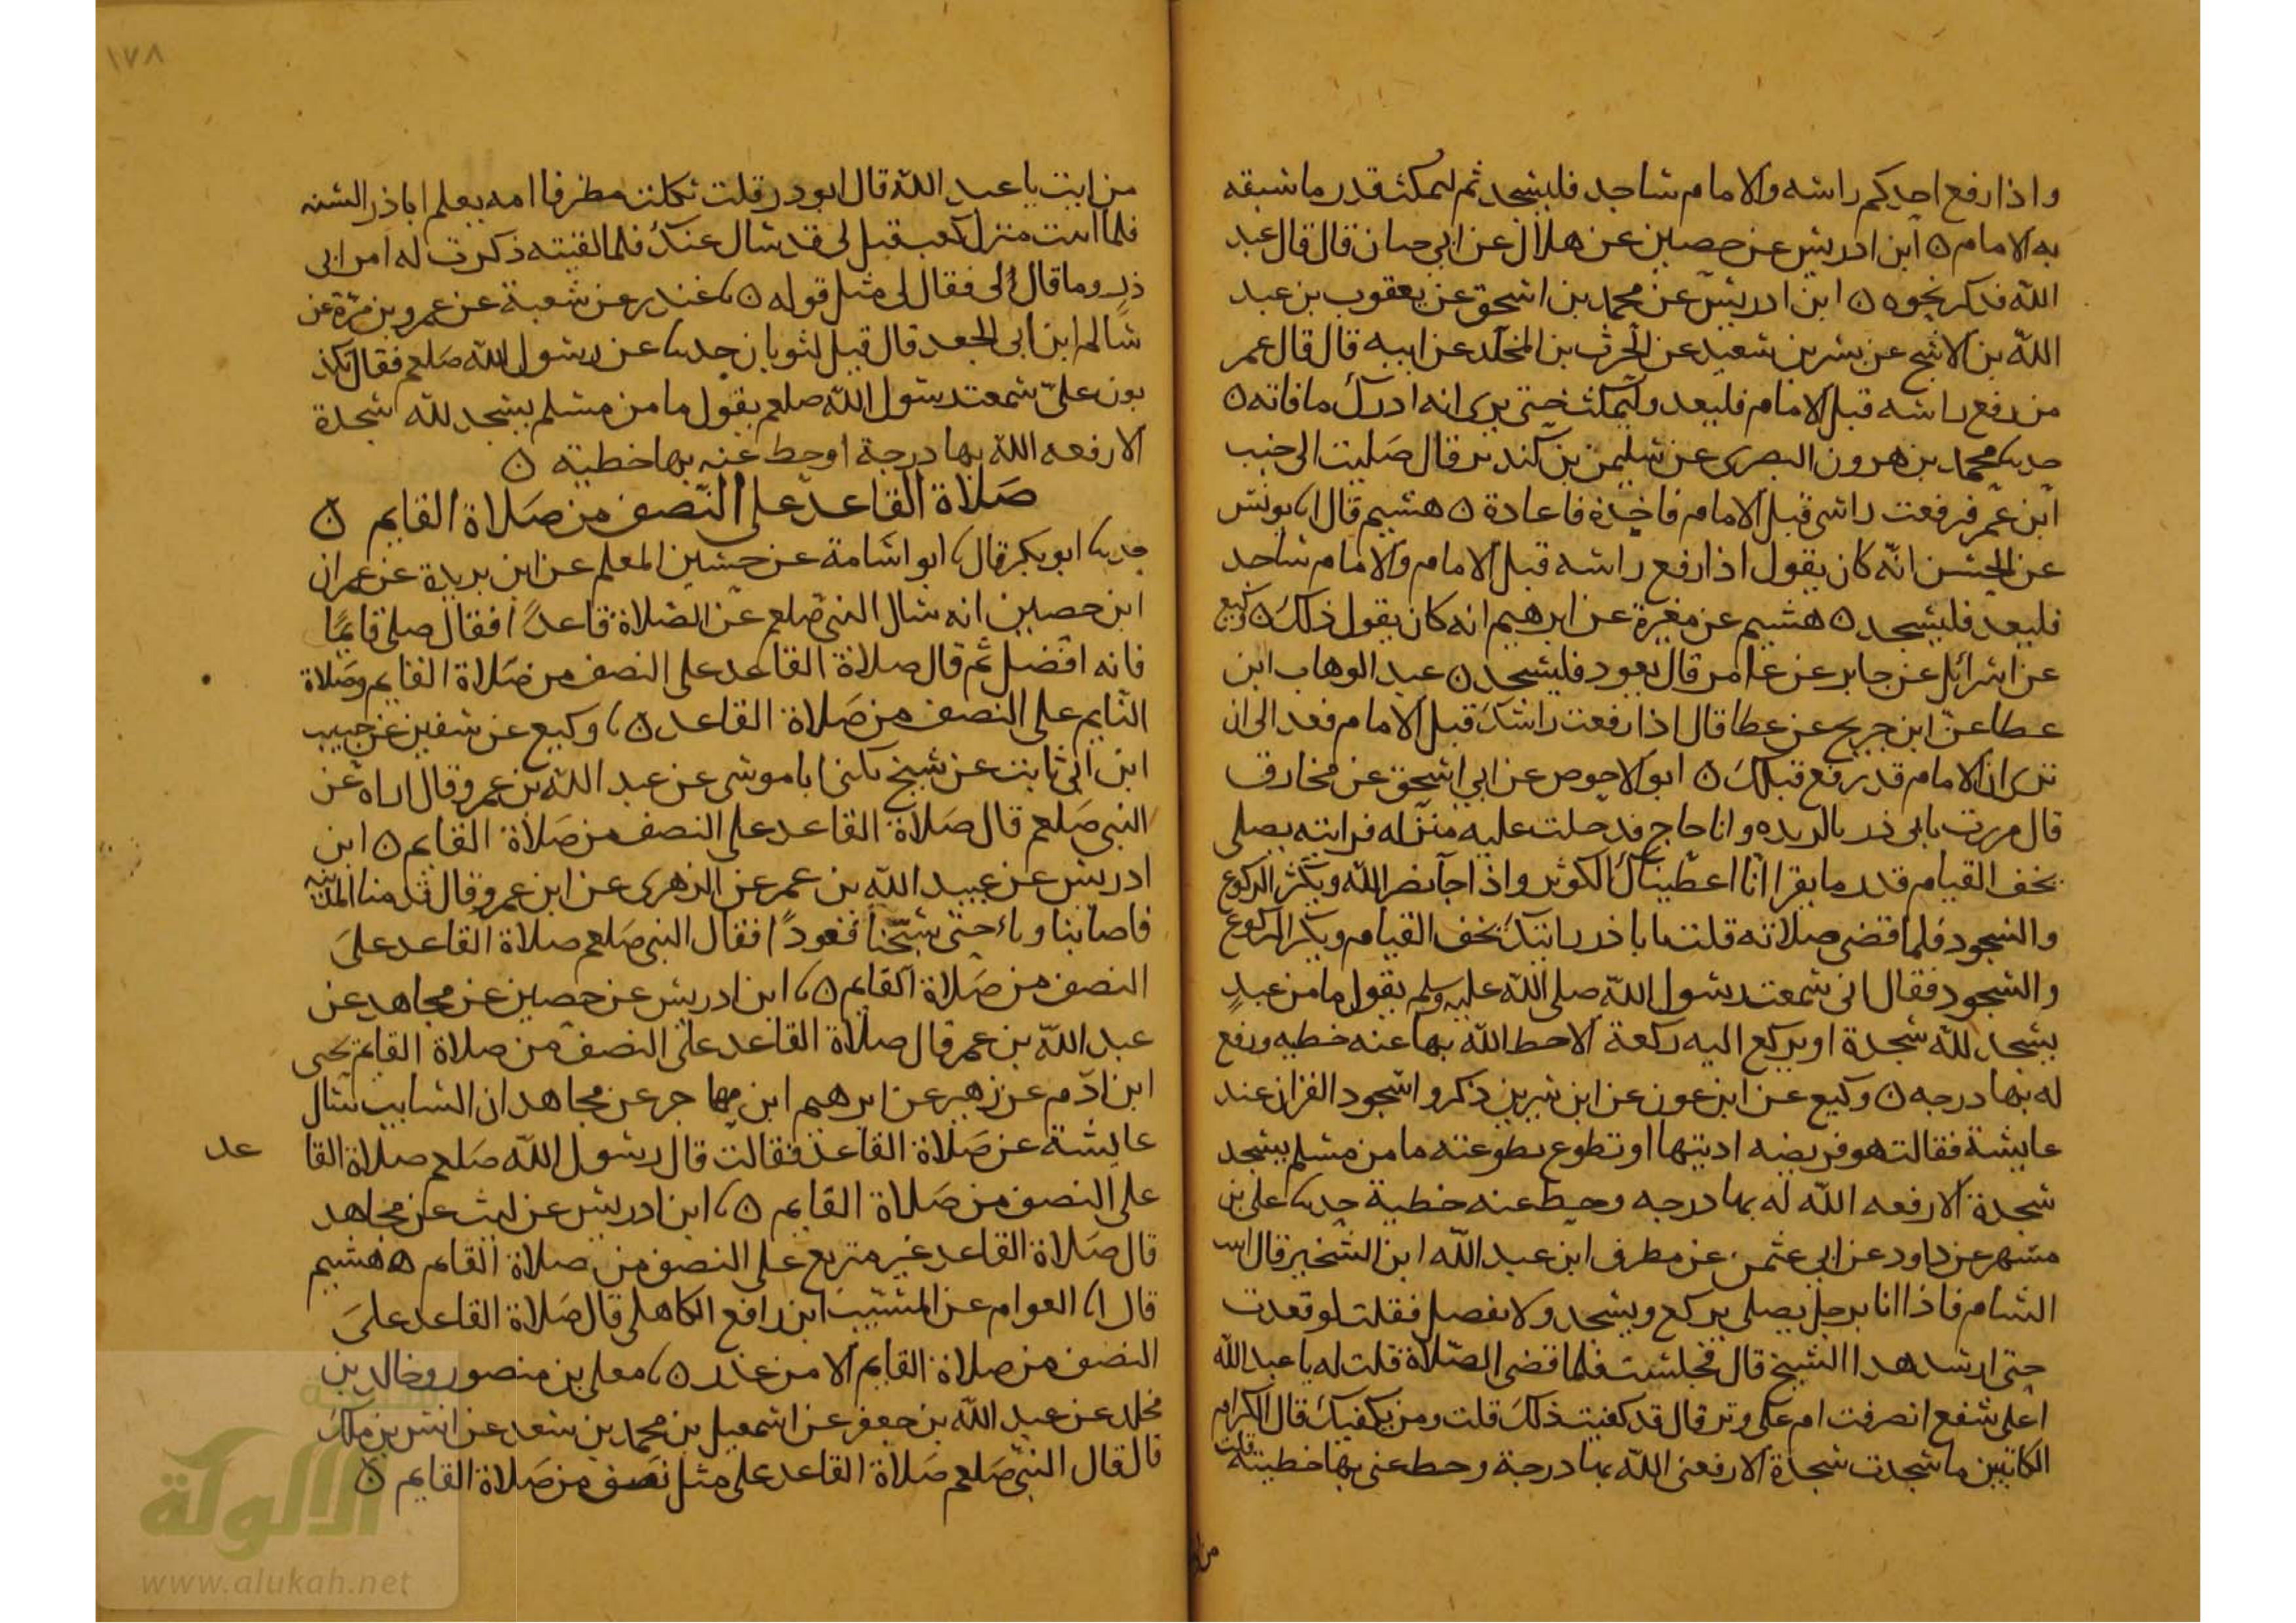 واذا رفع احدكم راسه والامام ساجد فليسجد ثم ليمكث قدر ما سبقه
به الامام ن ابن ادريس عن حصين عن هلال عن ابي حيان قال قال عبد
الله فذكر نحوه ن ابن ادريس عن محمد بن اسحق عن يعقوب بن عبد
الله بن الاشج عن بسر بن سعيد عن الحرث بن المخلد عن ابيه قال قال عمر
من رفع راسه قبل الامام فليعد وليمكث حتى يرى انه ادرك ما فاته ن
حدثنا محمد بن هرون البصرى عن سليمن بن كندير قال صليت الى جنب
ابن عمر فرفعت راسى قبل الامام فاخذه فاعاده ن هشيم قال انا يونس
عن الحسن انه كان يقول اذا رفع راسه قبل الامام والامام ساجد
فليعد فليسجد ن هشيم عن مغيرة عن ابرهيم انه كان يقول ذلك ن وكيع
عن اسرائل عن جابر عن عامر قال يعود فليسجد ن عبد الوهاب ابن
عطا عن ابن جريج عن عطا قال اذا رفعت راسك قبل الامام فعد الى ان
ترى ان الامام قد رفع قبلك ن ابو الاحوص عن ابي اسحق عن مخارق
قال مررت بابى ذر بالربده وانا حاج فدخلت عليه منزله فرايته يصلى
يخف القيام قدر ما يقرا انا اعطيناك الكوثر واذا جا نصر الله ويكثر الركوع
والسجود فلما قضى صلاته قلت يا با ذر رايتك تخف القيام وتكثر الركوع
والسجود فقال انى سمعت رسول الله صلى الله عليه وسلم يقول ما من عبد
يسجد لله سجدة او يركع اليه ركعة الا حط الله بها عنه خطيه ورفع
له بها درجه ن وكيع عن ابن عون عن ابن سيرين ذكروا سجود القران عند
عايشة فقالت هو فريضه اديتها او تطوع تطوعته ما من مسلم يسجد
سجدة الا رفعه الله له بها درجه وحط عنه خطية حدثنا على بن
مسهر عن داود عن ابي عثمن عن مطرف ابن عبد الله ابن الشخير قال اتيت
الشام فاذا انا برجل يصلى يركع ويسجد ولا يفصل فقلت لو قعدت
حتى ارشد هذا الشيخ قال فجلست فلما قضى الصلاة قلت له يا عبد الله
اعلى شفع انصرفت ام على وتر قال قد كفيت ذلك قلت ومن يكفيك قال الكرام
الكاتبين ما سجدت سجدة الا رفعنى الله بها درجة وحط عنى بها خطيئة قلت
من
١٧٨
من انت يا عبد الله قال ابو ذر قلت ثكلت مطرفا امه يعلم ابا ذر السنه
فلما اتيت منزل كعب قيل لى قد سال عنك فلما لقيته ذكرت له امر ابى
ذر وما قال لى فقال لى مثل قوله ن نا غندر عن شعبة عن عمرو بن مرة عن
سالم ابن ابى الجعد قال قيل لثوبان حدثنا عن رسول الله صلعم فقال تكذ
بون على سمعت رسول الله صلعم يقول ما من مسلم يسجد لله سجدة
الا رفعه الله بها درجة او حط عنه بها خطية ن
صلاة القاعد على النصف من صلاة القايم ن
حدثنا ابو بكر قال نا ابو اسامة عن حسين المعلم عن ابن بريدة عن عمران
ابن حصين انه سال النبى صلعم عن الصلاة قاعدا فقال صلى قايما
فانه افضل ثم قال صلاة القاعد على النصف من صلاة القايم وصلاة
النايم على النصف من صلاة القاعد ن نا وكيع عن سفين عن حبيب
ابن ابى ثابت عن شيخ يكنى ابا موسى عن عبد الله بن عمرو قال اراه عن
النبى صلعم قال صلاة القاعد على النصف من صلاة القايم ن ابن
ادريس عن عبيد الله بن عمر عن الزهرى عن ابن عمرو قال قدمنا المدينه
فاصابنا وباء حتى سبحنا قعودا فقال النبى صلعم صلاة القاعد على
النصف من صلاة القايم ن نا ابن ادريس عن حصين عن مجاهد عن
عبد الله بن عمر قال صلاة القاعد على النصف من صلاة القايم يحيى
ابن ادم عن زهير عن ابرهيم ابن مهاجر عن مجاهد ان السايب سال
عايشة عن صلاة القاعد فقالت قال رسول الله صلعم صلاة القا عد
على النصف من صلاة القايم ن نا ابن ادريس عن ليث عن مجاهد
قال صلاة القاعد غير متربع على النصف من صلاة القايم ن هشيم
قال انا العوام عن المسيب ابن رافع الكاهلى قال صلاة القاعد على
النصف من صلاة القايم الا من عذر ن نا معلى بن منصور وخالد بن
مخلد عن عبد الله بن جعفر عن اسمعيل بن محمد بن سعد عن انس بن ملك
قال قال النبى صلعم صلاة القاعد على مثل نصف من صلاة القايم ن
شبكة
الألوكة
www.alukah.net